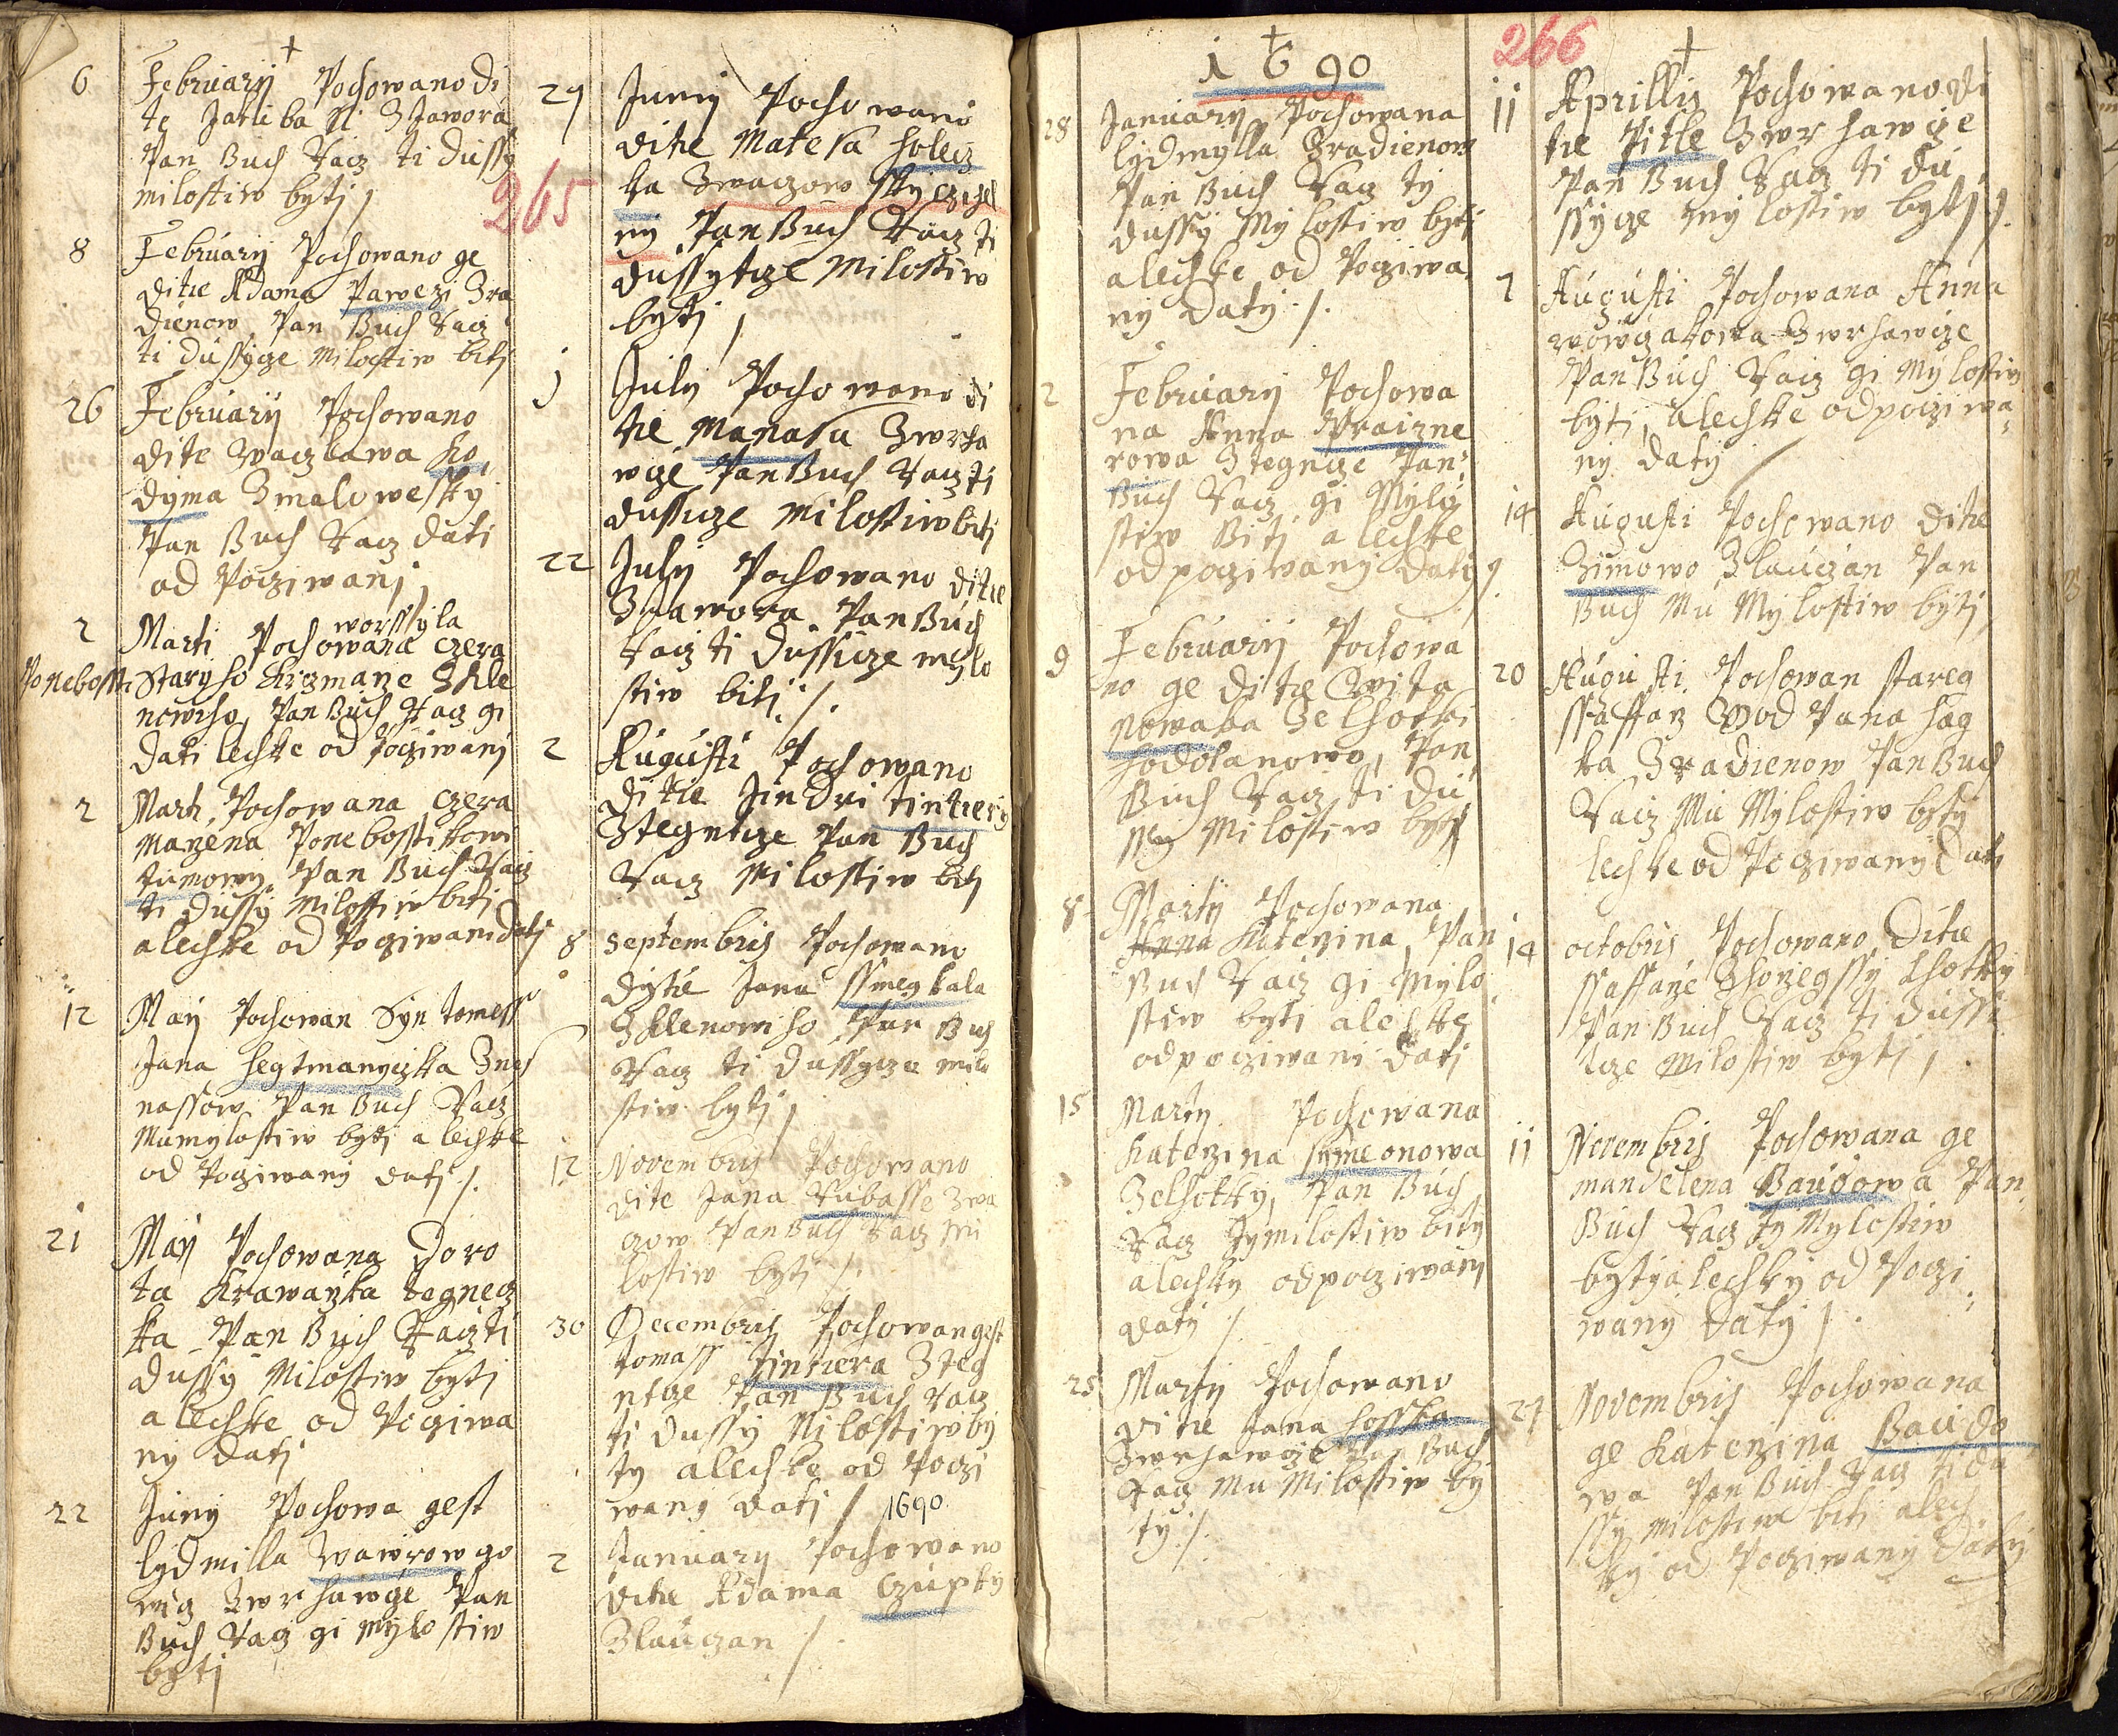 265
6 Februarÿ Pochowano di
te Jakuba Zjawora
Pan Buch Racz ti dussÿ
milostiw bytj
8 Februarÿ Pochowano ge
ditie Adama Pawezi Zra
dienow Pan Buch Racz
ti dussÿcze Milostiw bitj
26 Februarÿ Pochowano
dite Waczlawa Ko,
dyma Zmalowesky
Pan Buch Racz dati
od Pocziwanj
2 Marti Pochowana worssyla czera
Ponebossti Staryho Krzmaze Zkle
nowiho, Pan Buch Racz gi
Dati lechke od Pocziwanj
2 Marti Pochowana czera
Mazena Ponebosstikowi
tumowy Pan Buch Racz
ti dussy Milostiw biti
a lechke od Pocziwani Datj
12 Maÿ Pochowan Syn tomess
Jana hegtmanyczka Zneh
nassow Pan Buch Racz
Mu mylostiw bytj a lechke
od Pocziwanÿ datj /.
21 Maÿ Pochowana Doro
ta Krawarzka tegnecz
ka Pan Buch Raczti
dussy Milostiw bytj
a lechke od Pocziwa
nÿ datj
22 Junÿ Pochowa gest
lydmilla Wawrowgo
wicz Zwrhawcze Pan
Buch Racz gi mylo stiw
bytj
29 Junÿ Pochowano
ditie Mateja holecz
ka Zwaczow
ny Pan Buch Racz ti
dussytcze Milostiw
bytj
j July Pochowano di
tie Manasa Zwrha
wcze Pan Buch Racz ti
dussicze milostiw biti
22 July Pochowano ditie
Zjawora. Pan Buch
Racz ti dussicze mylo
stiw bitj /.
2 Augusti Pochowano
ditie Jindri tintiery
Ztegntcze Pan Buch
Racz Milostiw bitj
8 Septembris Pochowano
dÿtie Jana ssmeykala
Zklenowiho Pan Buch
Racz ti dussycze milo
stiw bytj
12 Novembris Pochowano
dite Jana Kubasse Zwa
czow Pan Buch Racz mi
lostiw bytj /.
30 Decembris Pochowan gest
tomass tintiera Zteg
ntcze Pan Buch racz
ti dussy Milostiw by
ty a lechke od Poczi
wanj datj / 1690
2 Januarÿ Pochowano
ditie Adama Czupky
Zlauczan /.
266
1690
28 Januarÿ Pochowana
lydmylla Zradienow
Pan Buch Racz ty
dussÿ Mylostiw bytj
a lechke od Pocziwa
nÿ datÿ /.
2 Februarÿ Pochowa
na Anna Prairne
rowa Ztegncze Pan
Buch Racz gi Mylo
stiw Biti a lechke
odpocziwanÿ datÿ /.
9 Februarÿ Pochowa
no ge ditie Wita
nowaka Zelhotki
hodolanowo, Pan
Buch Racz ti du
ssy Milostiw bytj
8 Martÿ Pochowana
Anna Katerzina, Pan
Buch Racz gi Mylo
stiw byti a lechke
odpocziwani datj
15 Martÿ Pochowana
Katerzina symeonowa
Zelhotky, Pan Buch
Racz ty milostiw bitÿ
a lechky odpocziwanÿ
datÿ /.
25 Martÿ Pochowano
ditie Jana hosska
Zwrhawcze Pan Buch
Racz mu Milostiw by
tÿ /.
11 Aprillis Pochowano di
tie Pitle Zwrhawcze
Pan Buch Racz ti du
ssÿcze mÿlostiw bytj /.
7 Augusti Pochowana Anna
Zwrhawcze
Pan Buch Racz gi Mylostiw
bytj, a lechke odpocziwa
nÿ datÿ /
14 Augusti Pochowano ditie
Zimowo Zlauczan Pan
Buch Mu Mylostiw bÿtj
20 Augusti Pochowan stareg
ssaffarz od Pana hag
ka Zradienow Pan Buch
Racz Mu Mylostiw bÿtÿ
lechke od Pocziwanÿ Datÿ
14 octobris Pochowano Ditie
ssaffarze Zhorzegssÿ lhotky
Pan Buch Racz ti dussi
tcze Milostiw bytj,
11 Novembris Pochowana ge
mandelena Baudowa Pan
Buch Racz tÿ Mylostiw
bÿtÿ a lechkÿ od Poczi
wanÿ datÿ /.
27 Novembris Pochowana
ge Katerzina Baudo
wa Pan Buch Racz ti du
ssÿ milostiw biti a lech
kÿ od Pocziwanÿ datÿ